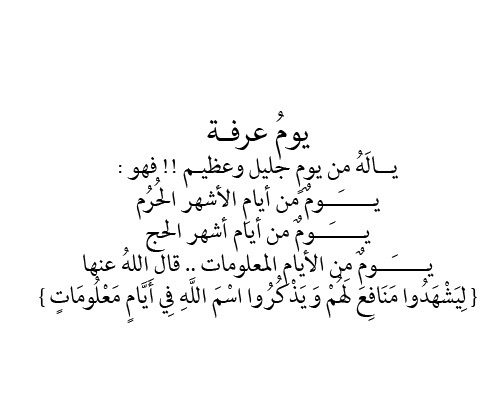 يومُ عرفـة
يـــالَهُ من يومٍ جليل وعظيـم !! فهو :
يــــــــَـــومٌ من أيامِ الأشهر الحُرُم
يــــــــَـــومٌ من أيام أشهر الحج
يــــــــَـــومٌ من الأيامِ المعلومات .. قال اللهُ عنها
{ لِيَشْهَدُوا مَنَافِعَ لَهُمْ وَيَذْكُرُوا اسْمَ اللَّهِ فِي أَيَّامٍ مَعْلُومَاتٍ }